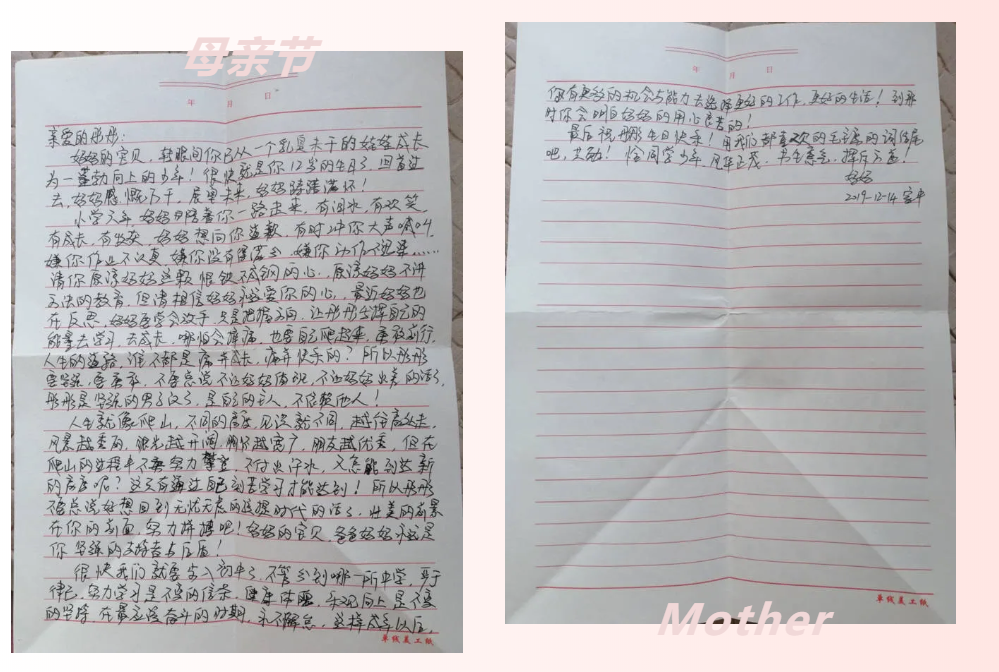 母亲节
年 月 日
亲爱的彤彤：
妈妈的宝贝，转眼间你已从一个乳臭未干的娃娃成长
为一蓬勃向上的少年！很快就是你12岁的生日了，回首过
去，妈妈感慨万千，展望未来，妈妈踌躇满怀！
小学六年，妈妈陪着你一路走来，有泪水，有欢笑，
有成长，有收获，妈妈想向你道歉，有时冲你大声吼叫，
嫌你作业不认真，嫌你没有满分，嫌你动作不迅速……
请你原谅妈妈这颗恨铁不成钢的心，原谅妈妈不讲
方法的教育，但请相信妈妈永远爱你的心，最近妈妈也
在反思，妈妈要学会放手，只是把握方向，让彤彤发挥自己的
能量去学习，去成长，哪怕会摔痛，也要自己爬起来，勇敢前行，
人生的道路，谁不都是痛并成长，痛并快乐的？所以彤彤
要坚强，要勇敢，不要总说不让妈妈偷视，不让妈妈火的话了，
彤彤是坚强的男子汉了，是自己的主人，不依赖他人！
人生就像爬山，不同的高度，见识就不同，越往高处走，
风景越秀丽，眼光越开阔，胸怀越宽广，朋友越优秀，但在
爬山的过程中不努力攀登，不付出汗水，又怎能到达新
的高度呢？这只有通过自己刻苦学习才能达到！所以彤彤
不要总说好想回到无忧无虑的时代的话了，壮美的前景
在你的前面，努力拼搏吧！妈妈的宝贝，爸爸妈妈永远是
你坚强的支持者与后盾！
很快我们就要步入初中了，不管分到哪一所中学，严于
律己，努力学习是不变的信条，健康体魄，乐观向上是不变
的坚持，在最应该奋斗的时期，永不懈怠，这样成年以后，
单线美工纸
年 月 日
你有更多的机会与能力去选择更好的工作，更好的生活！到那
时你会明白妈妈的用心良苦的！
最后祝彤彤生日快乐！用我们都喜欢的毛主席的词结尾
吧，共勉！恰同学少年，风华正茂，书生意气，挥斥方遒！
妈妈
2019-12-14
单线美工纸
Mother